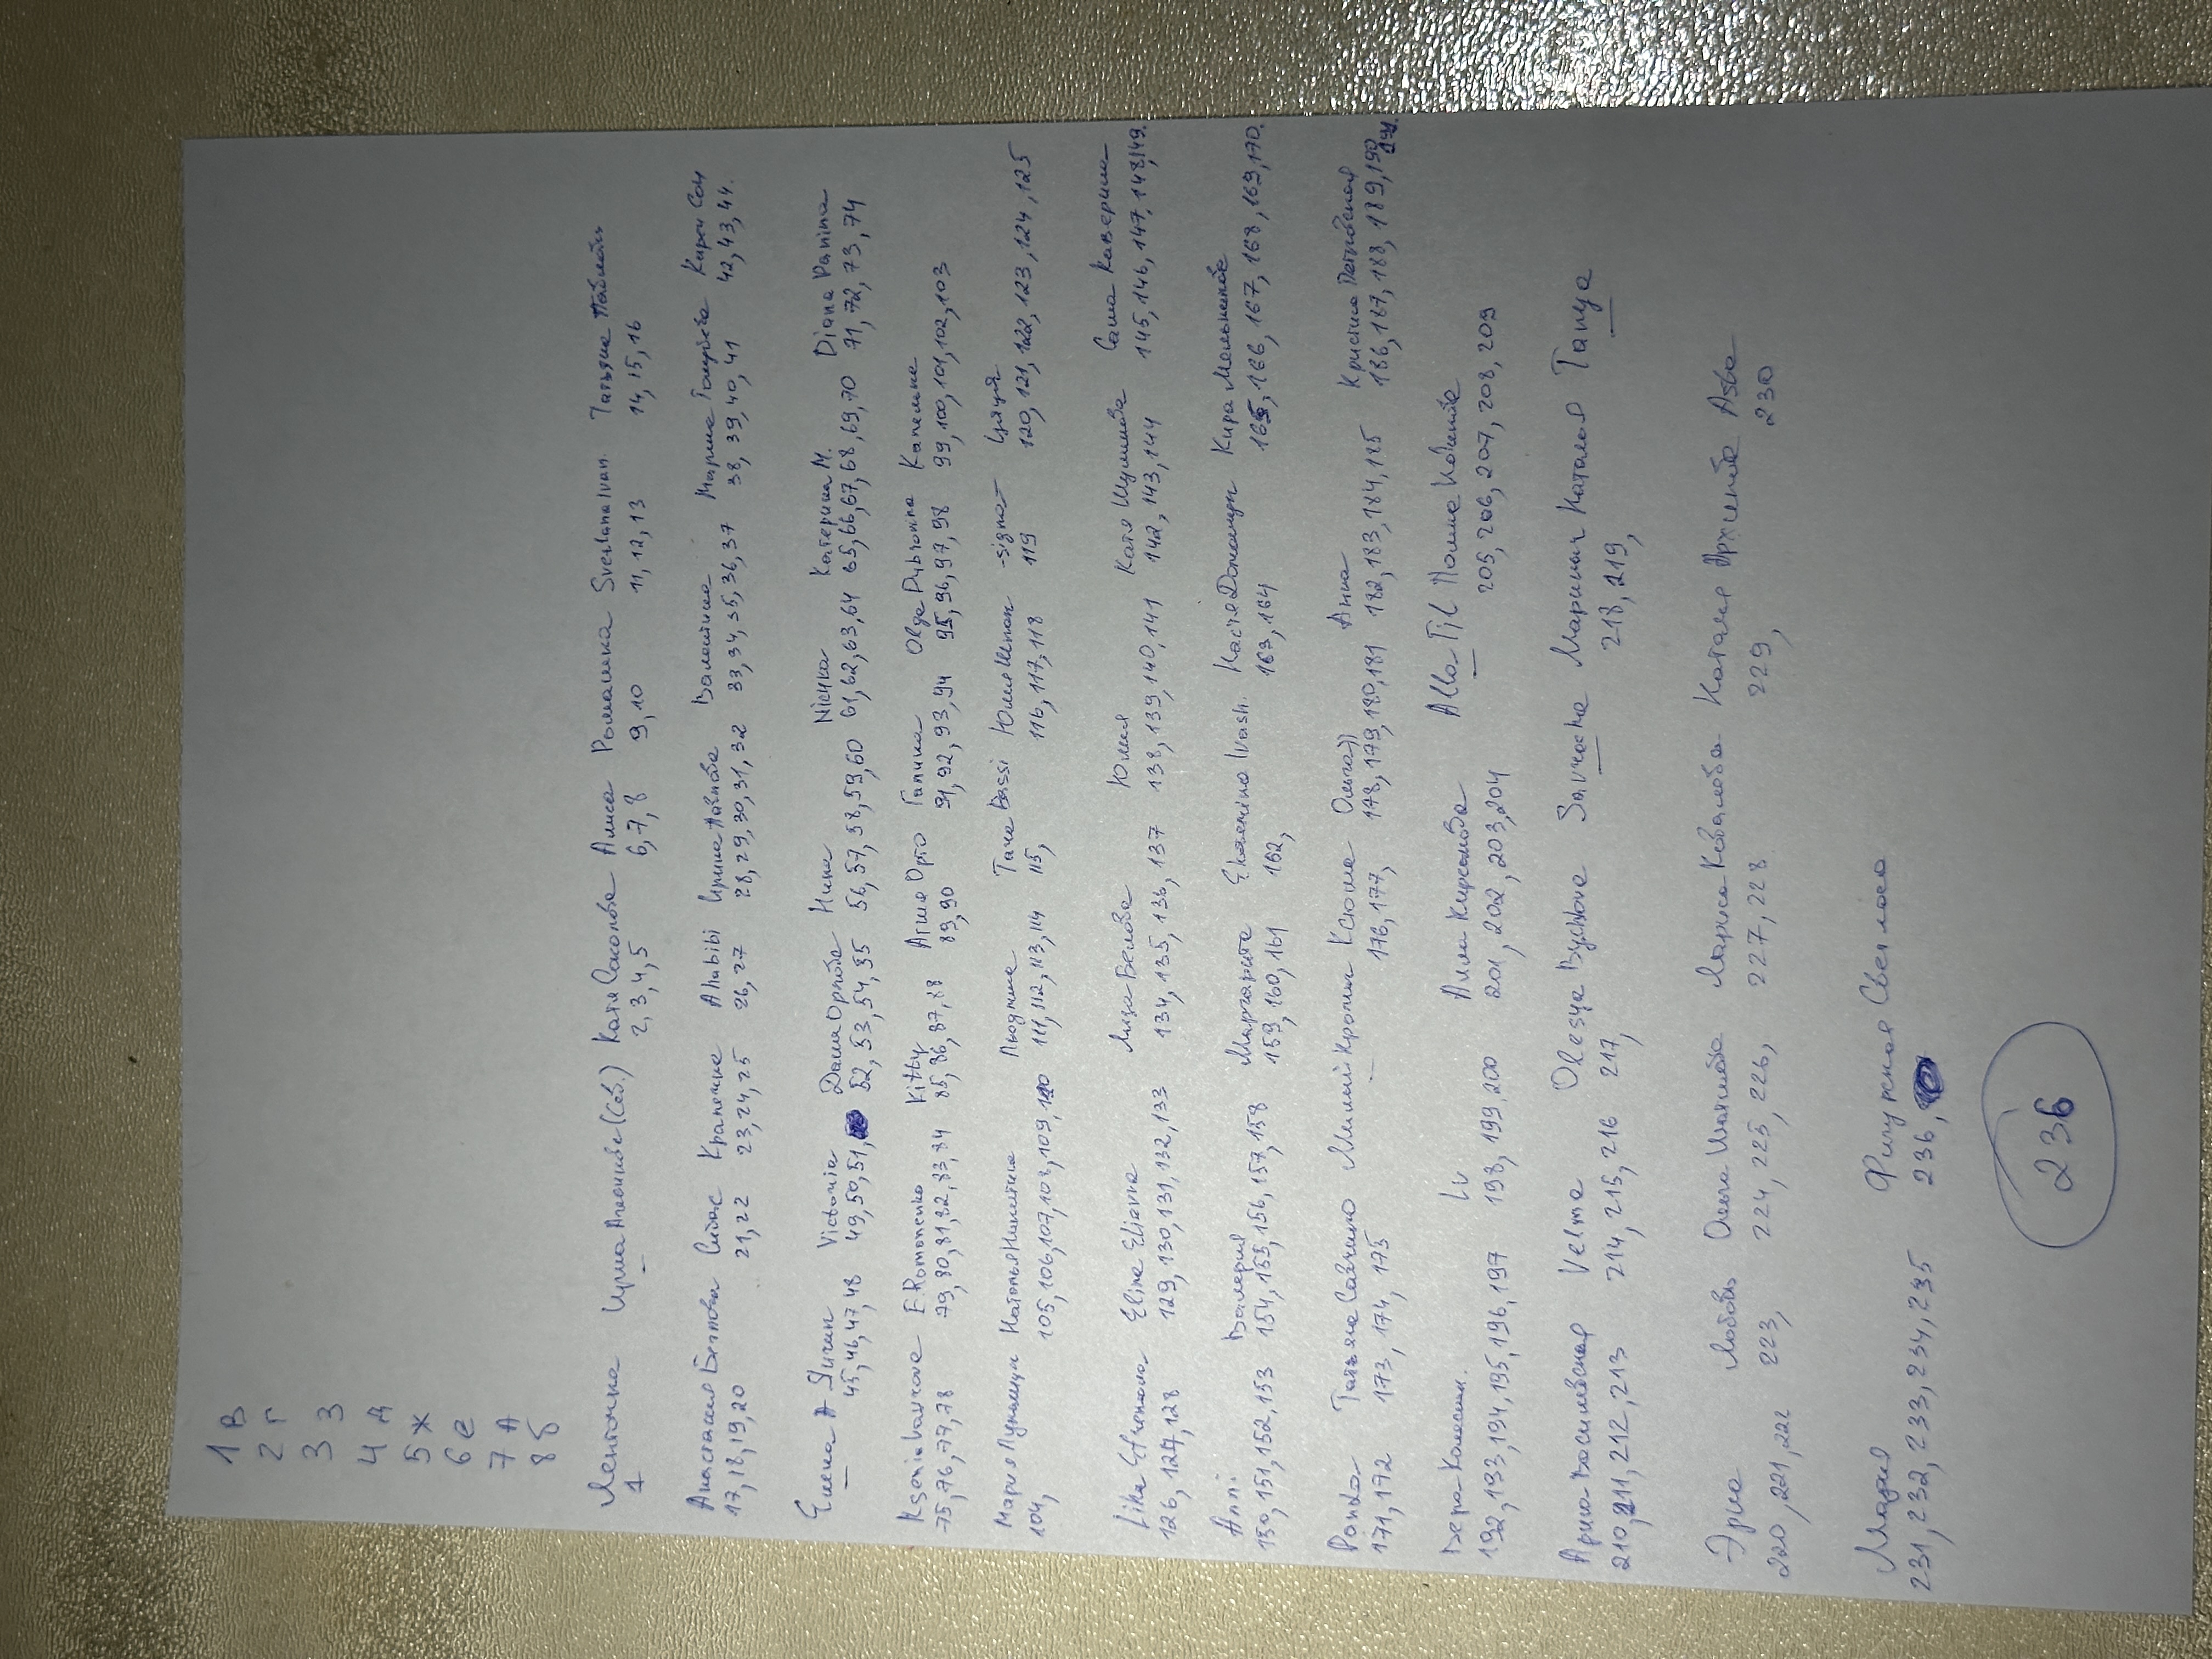 1 В
2 Г
3 З
4 Д
5 Ж
6 е
7 А
8 б
Ленточка Ирина Агеонив(Сев.) Катя Соколова Алиса Ромашка Svetlana Ivan. Татьяна
1 2, 3, 4, 5 6, 7, 8 9, 10 11, 12, 13 14, 15, 16
Анастасия Силос Крапение Ahabibi Ирина Валентина Марина Кирен Сон
17, 18, 19, 20 21, 22 23, 24, 25 26, 27 28, 29, 30, 31, 32 33, 34, 35, 36, 37 38, 39, 40, 41 42, 43, 44.
Елена А Victoria Даша Орлова Нина Nichka Катерина М. Diana Panina
45, 46, 47, 48 49, 50, 51, 52, 53, 54, 55 56, 57, 58, 59, 60 61, 62, 63, 64 65, 66, 67, 68, 69, 70 71, 72, 73, 74
Ksenia E.Romanenko Kitty Агша Орто Галина Olga Dubrovina Капелька
75, 76, 77, 78 79, 80, 81, 82, 83, 84 85, 86, 87, 88 89, 90 91, 92, 93, 94 95, 96, 97, 98 99, 100, 101, 102, 103
Мария Луницун Наталья Никитина Людмила Таня Bassi Юлия Шпак -signat- Ццуя
104, 105, 106, 107, 108, 109, 110 111, 112, 113, 114 115, 116, 117, 118 119 120, 121, 122, 123, 124, 125
Lika Efremova Elina Elianna Лиза Белова Юлия Катя Шумилова Саша Каверина
126, 127, 128 129, 130, 131, 132, 133 134, 135, 136, 137 138, 139, 140, 141 142, 143, 144 145, 146, 147, 148, 149.
Anni. Валерия Маргарита Ekaterina Ivash. Настя Кира Мельникова
150, 151, 152, 153 154, 155, 156, 157, 158 159, 160, 161 162, 163, 164 165, 166, 167, 168, 169, 170.
Panda Татьяна Савченко Милый кролик Ксюша Ольга)) Анна Кристина
171, 172 173, 174, 175 176, 177, 178, 179, 180, 181 182, 183, 184, 185 186, 187, 188, 189, 190, 191.
Вера Lv Алла Кирсанова Alla-Fil Полина
192, 193, 194, 195, 196, 197 198, 199, 200 201, 202, 203, 204 205, 206, 207, 208, 209
Арина Василевская Velma Olesya Bychkova Savvasha Маринич Наталья Tanya
210, 211, 212, 213 214, 215, 216 217, 218, 219,
Эрика Любовь Ольга Лариса Ковалева Наталия Архипова Asba
220, 221, 222 223, 224, 225, 226, 227, 228 229, 230
Мадия Светлана
231, 232, 233, 234, 235 236,
236